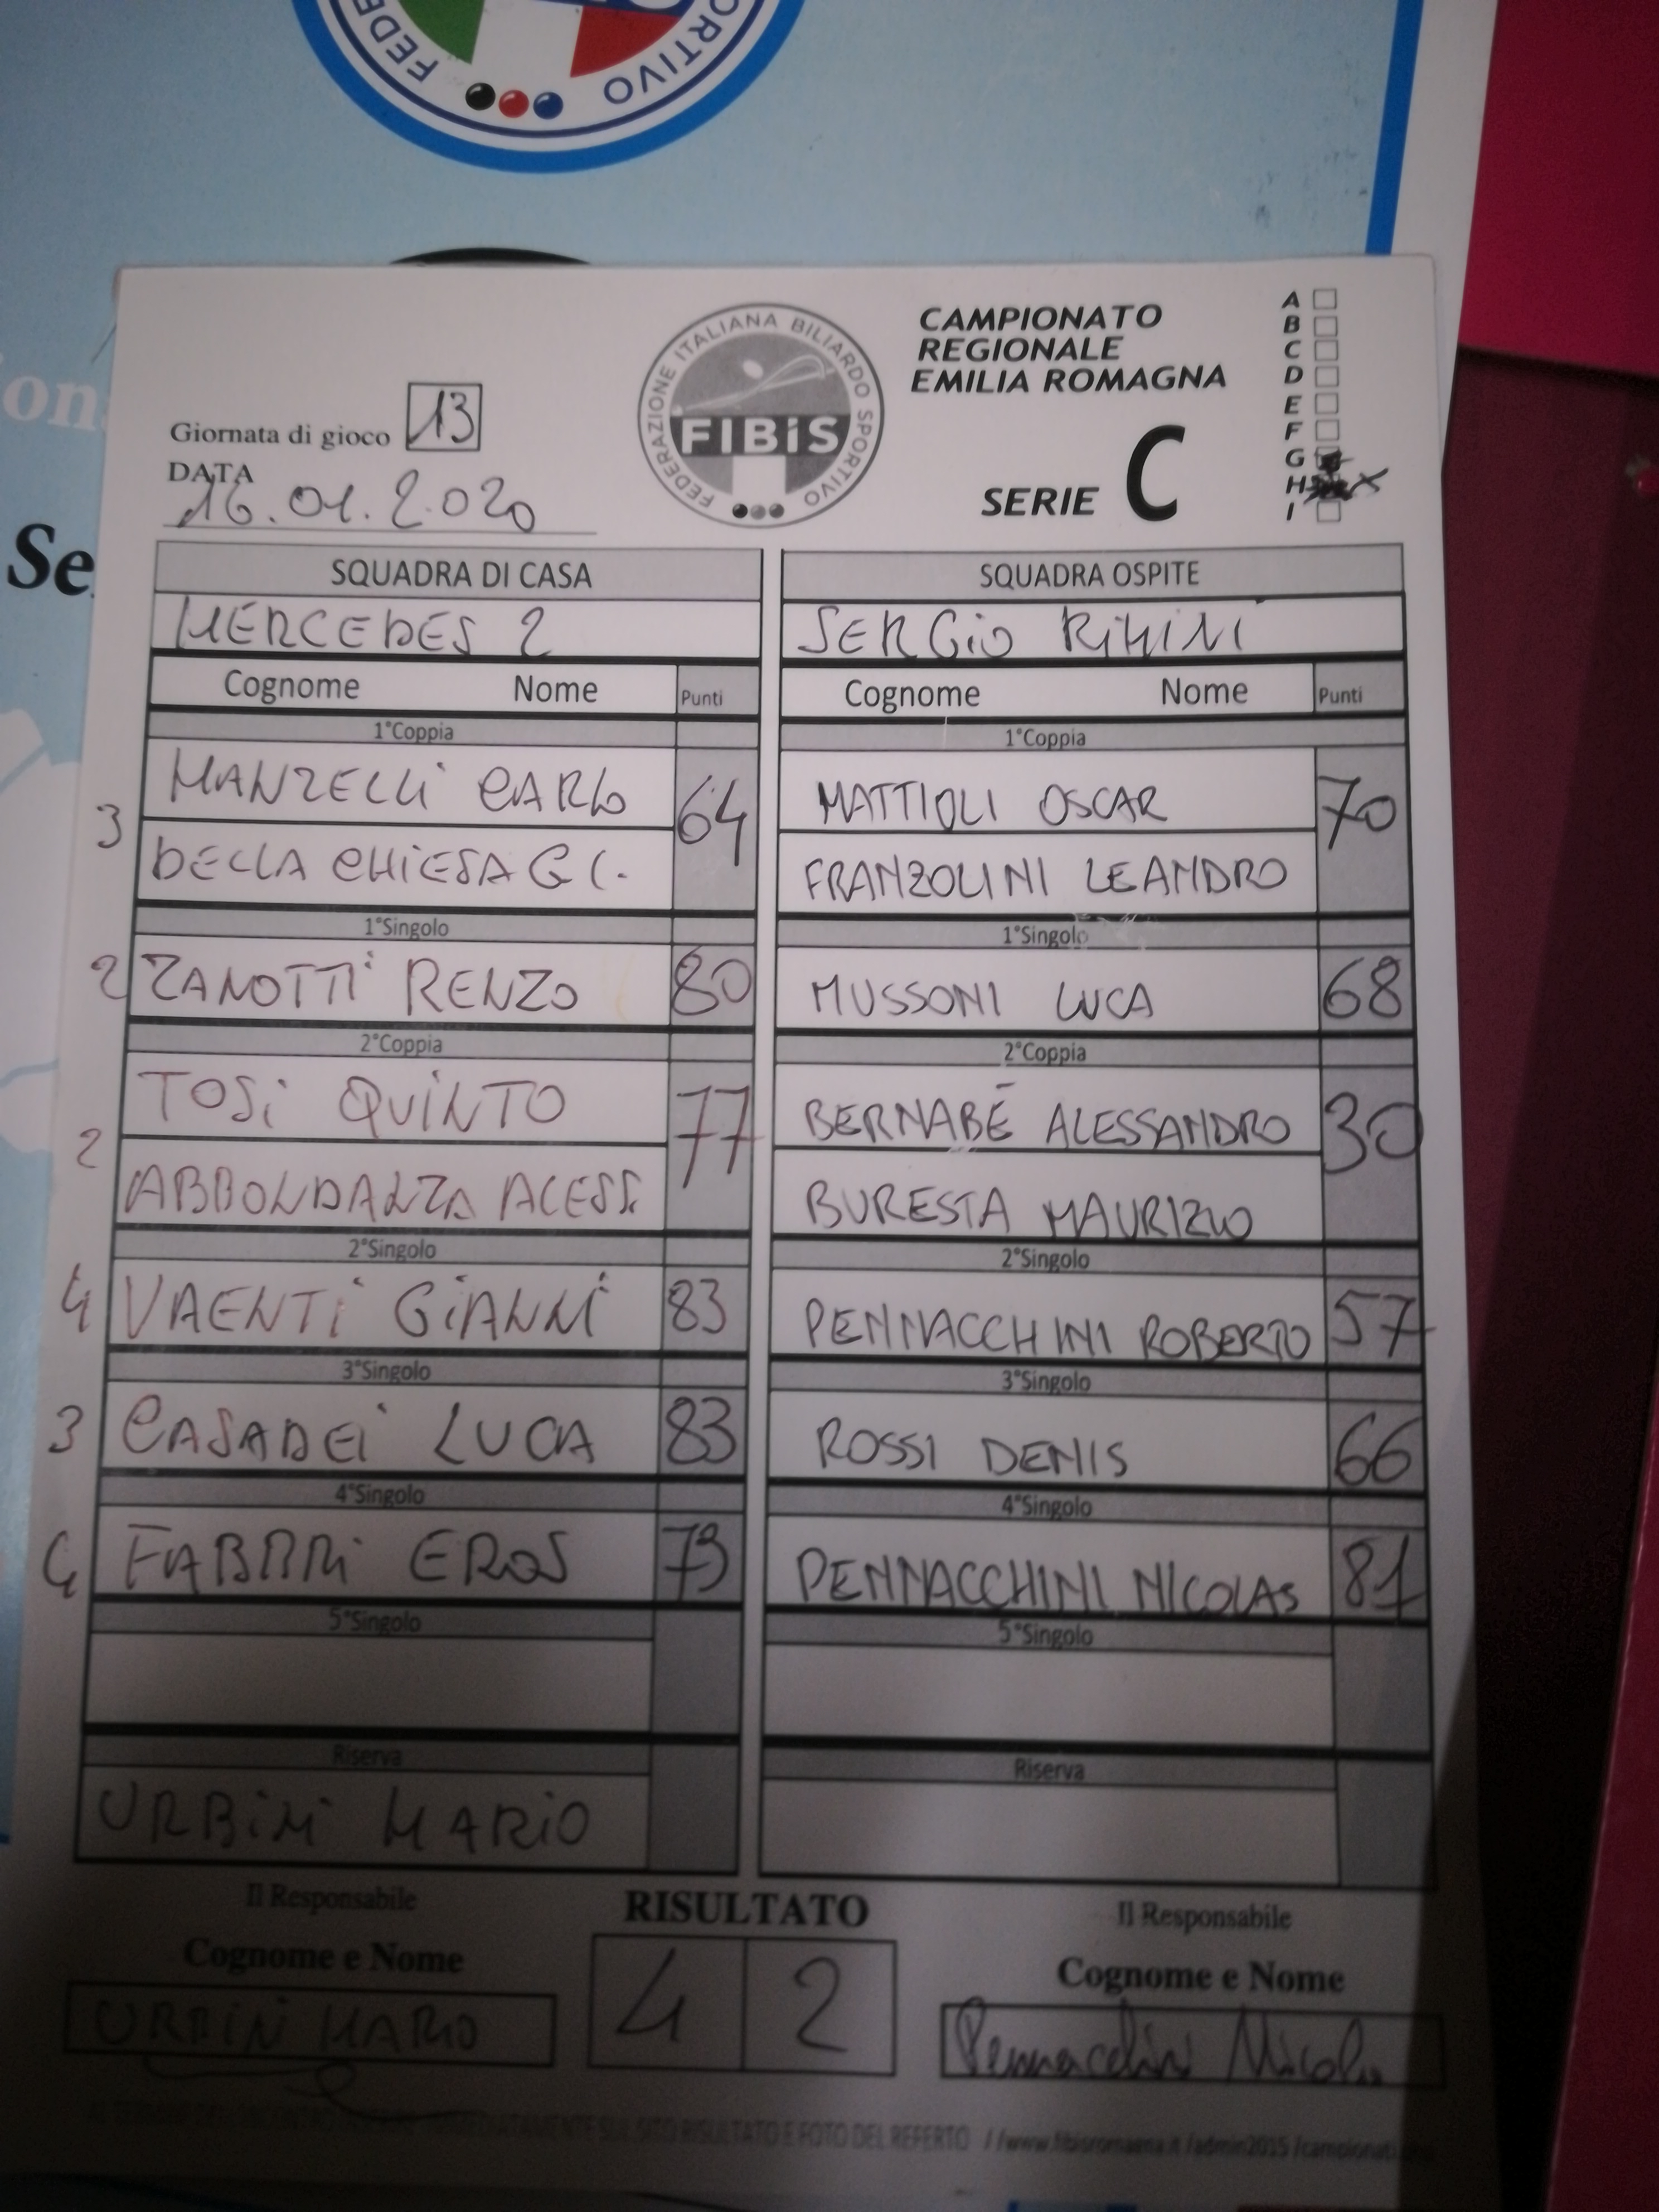 FEDE ORTIVO
on
Se
FEDERAZIONE ITALIANA BILIARDO SPORTIVO
FIBiS
CAMPIONATO
REGIONALE
EMILIA ROMAGNA
SERIE C
A
B
C
D
E
F
G
H x
I
Giornata di gioco 13
DATA
16.01.2.020
SQUADRA DI CASA SQUADRA OSPITE
MERCEDES 2 SERGIO RIMINI
Cognome Nome Punti Cognome Nome Punti
1°Coppia 1°Coppia
MANZELLI CARLO 64 MATTIOLI OSCAR 70
3
DELLA CHIESA G C. FRANZOLINI LEANDRO
1°Singolo 1°Singolo
2 ZANOTTI RENZO 80 MUSSONI LUCA 68
2°Coppia 2°Coppia
TOSI QUINTO 77 BERNABÉ ALESSANDRO 30
2
ABBONDANZA ALESS. BURESTA MAURIZIO
2°Singolo 2°Singolo
4 VAENTI GIANNI 83 PENNACCHINI ROBERTO 57
3°Singolo 3°Singolo
3 CASADEI LUCA 83 ROSSI DENIS 66
4°Singolo 4°Singolo
4 FABBRI EROS 73 PENNACCHINI NICOLAS 81
5°Singolo 5°Singolo
Riserva Riserva
URBINI MARIO
Il Responsabile RISULTATO Il Responsabile
Cognome e Nome 4 2 Cognome e Nome
URBINI MARIO Pennacchini Nicolas
SUL SITO RISULTATO E FOTO DEL REFERTO